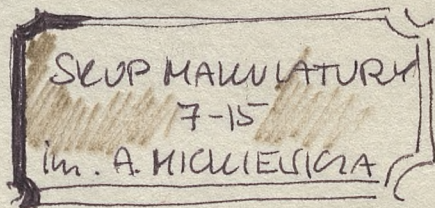 SKUP MAKULATURY
7-15
im. A. MICKIEWICZA